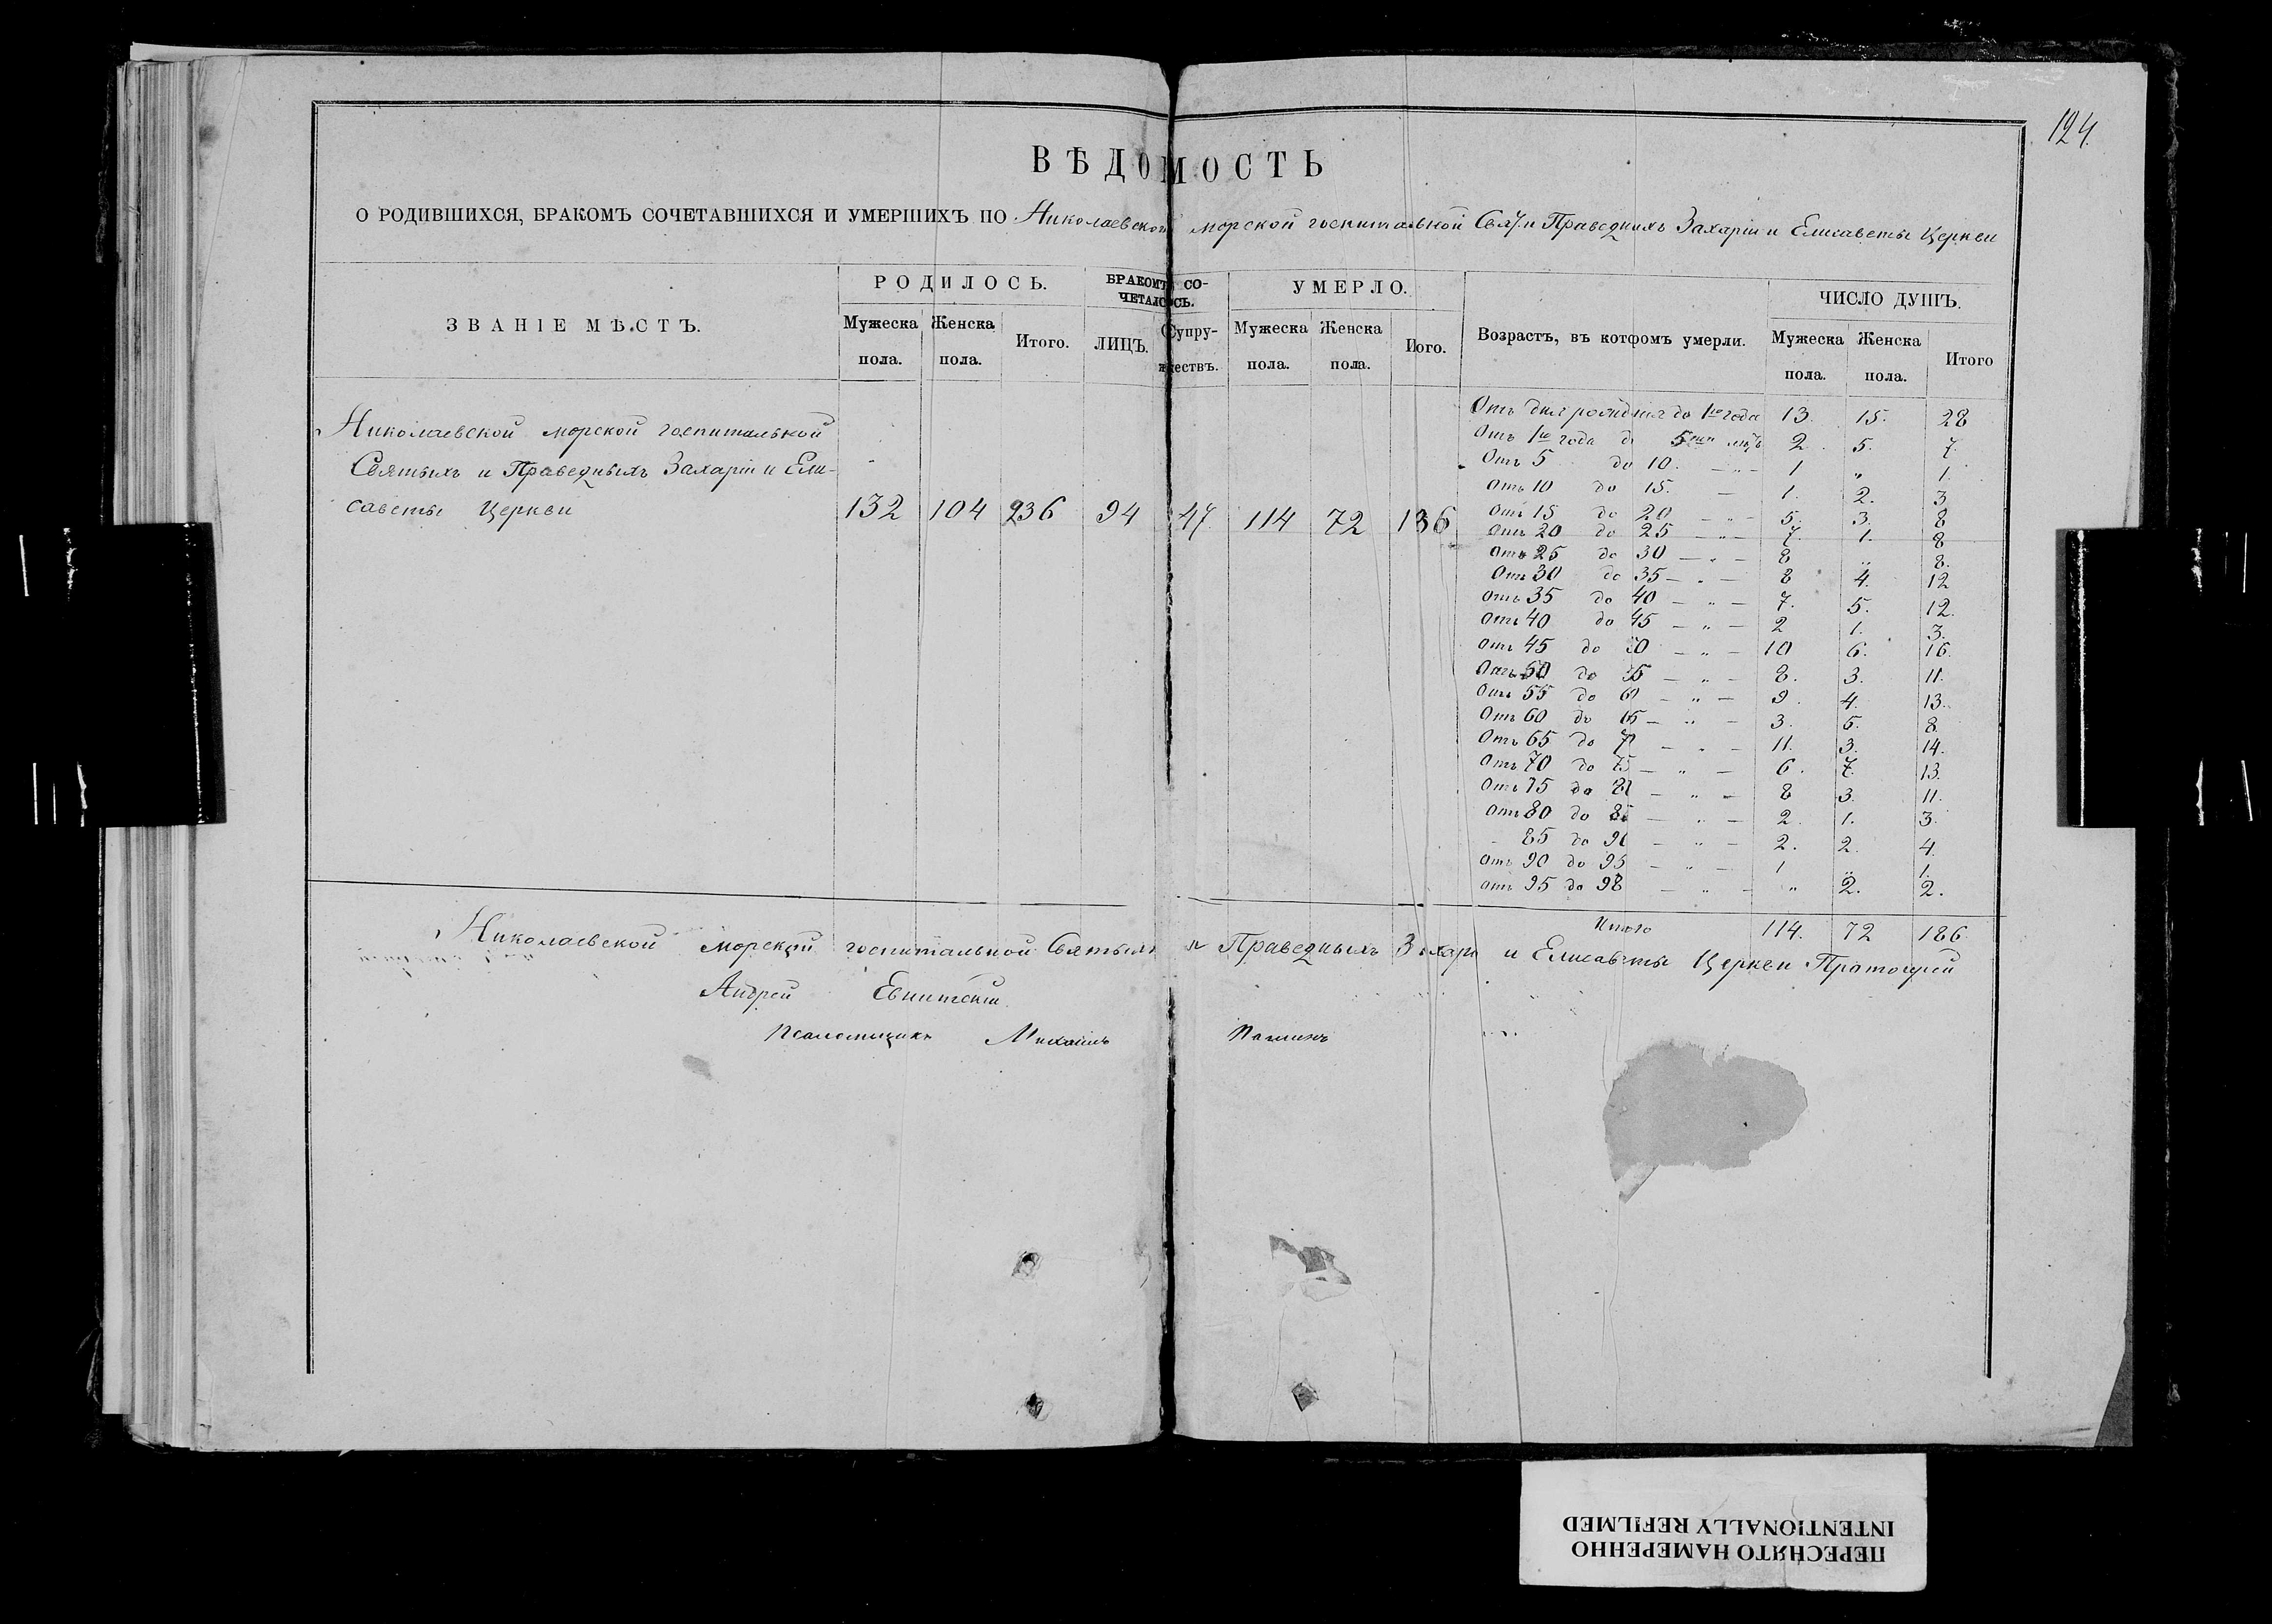 124.
ВѢДОМОСТЬ
О РОДИВШИХСЯ, БРАКОМЪ СОЧЕТАВШИХСЯ И УМЕРШИХЪ ПО Николаевской морской госпитальной Свят. и Праведныхъ Захаріи и Елисаветы Церкви
ЗВАНІЕ МѢСТЪ.
РОДИЛОСЬ.
Мужеска пола.
Женска пола.
Итого.
БРАКОМЪ СО-
ЧЕТАЛОСЬ.
ЛИЦЪ.
Супру-
жествъ.
УМЕРЛО.
Мужеска пола.
Женска пола.
Иого.
Возрастъ, въ котфомъ умерли.
ЧИСЛО ДУШЪ.
Мужеска пола.
Женска пола.
Итого
Николаевской морской госпитальной
Святыхъ и Праведныхъ Захаріи и Ели-
саветы Церкви 132 104 236 94 47 114 72 186
Отъ дня рожденія до 1го года 13. 15. 28
Отъ 1го года д 5ти лѣтъ 2. 5. 7.
Отъ 5 до 10. — „ — 1 „ 1.
Отъ 10 до 15. — 1. 2. 3
Отъ 15 до 20 — „ — 5. 3. 8
Отъ 20 до 25 — „ — 7. 1. 8
Отъ 25 до 30 — „ — 8 „ 8.
Отъ 30 до 35 — „ — 8 4. 12
Отъ 35 до 40 — „ — 7. 5. 12.
Отъ 40 до 45 — „ — 2 1. 3.
Отъ 45 до 50 — „ — 10 6. 16.
Отъ 50 до 55 — „ — 8. 3. 11.
Отъ 55 до 60 — „ — 9. 4. 13.
Отъ 60 до 65 — „ — 3. 5. 8
Отъ 65 до 70 — „ — 11. 3. 14.
Отъ 70 до 75 — „ — 6. 7. 13.
Отъ 75 до 80 — „ — 8 3. 11.
Отъ 80 до 85 — „ — 2. 1. 3.
85 до 90 — „ — 2. 2. 4.
Отъ 90 до 95 — „ — 1 „ 1.
Отъ 95 до 98 — „ — „ 2. 2.
Итого 114. 72 186
Николаевской морской госпитальной Святыхъ и Праведныхъ Захаріи и Елисаветы Церкви Протоіерей
Андрей
Псаломщикъ Михаилъ
ПЕРЕСНЯТО НАМЕРЕННО
INTENTIONALLY REFILMED